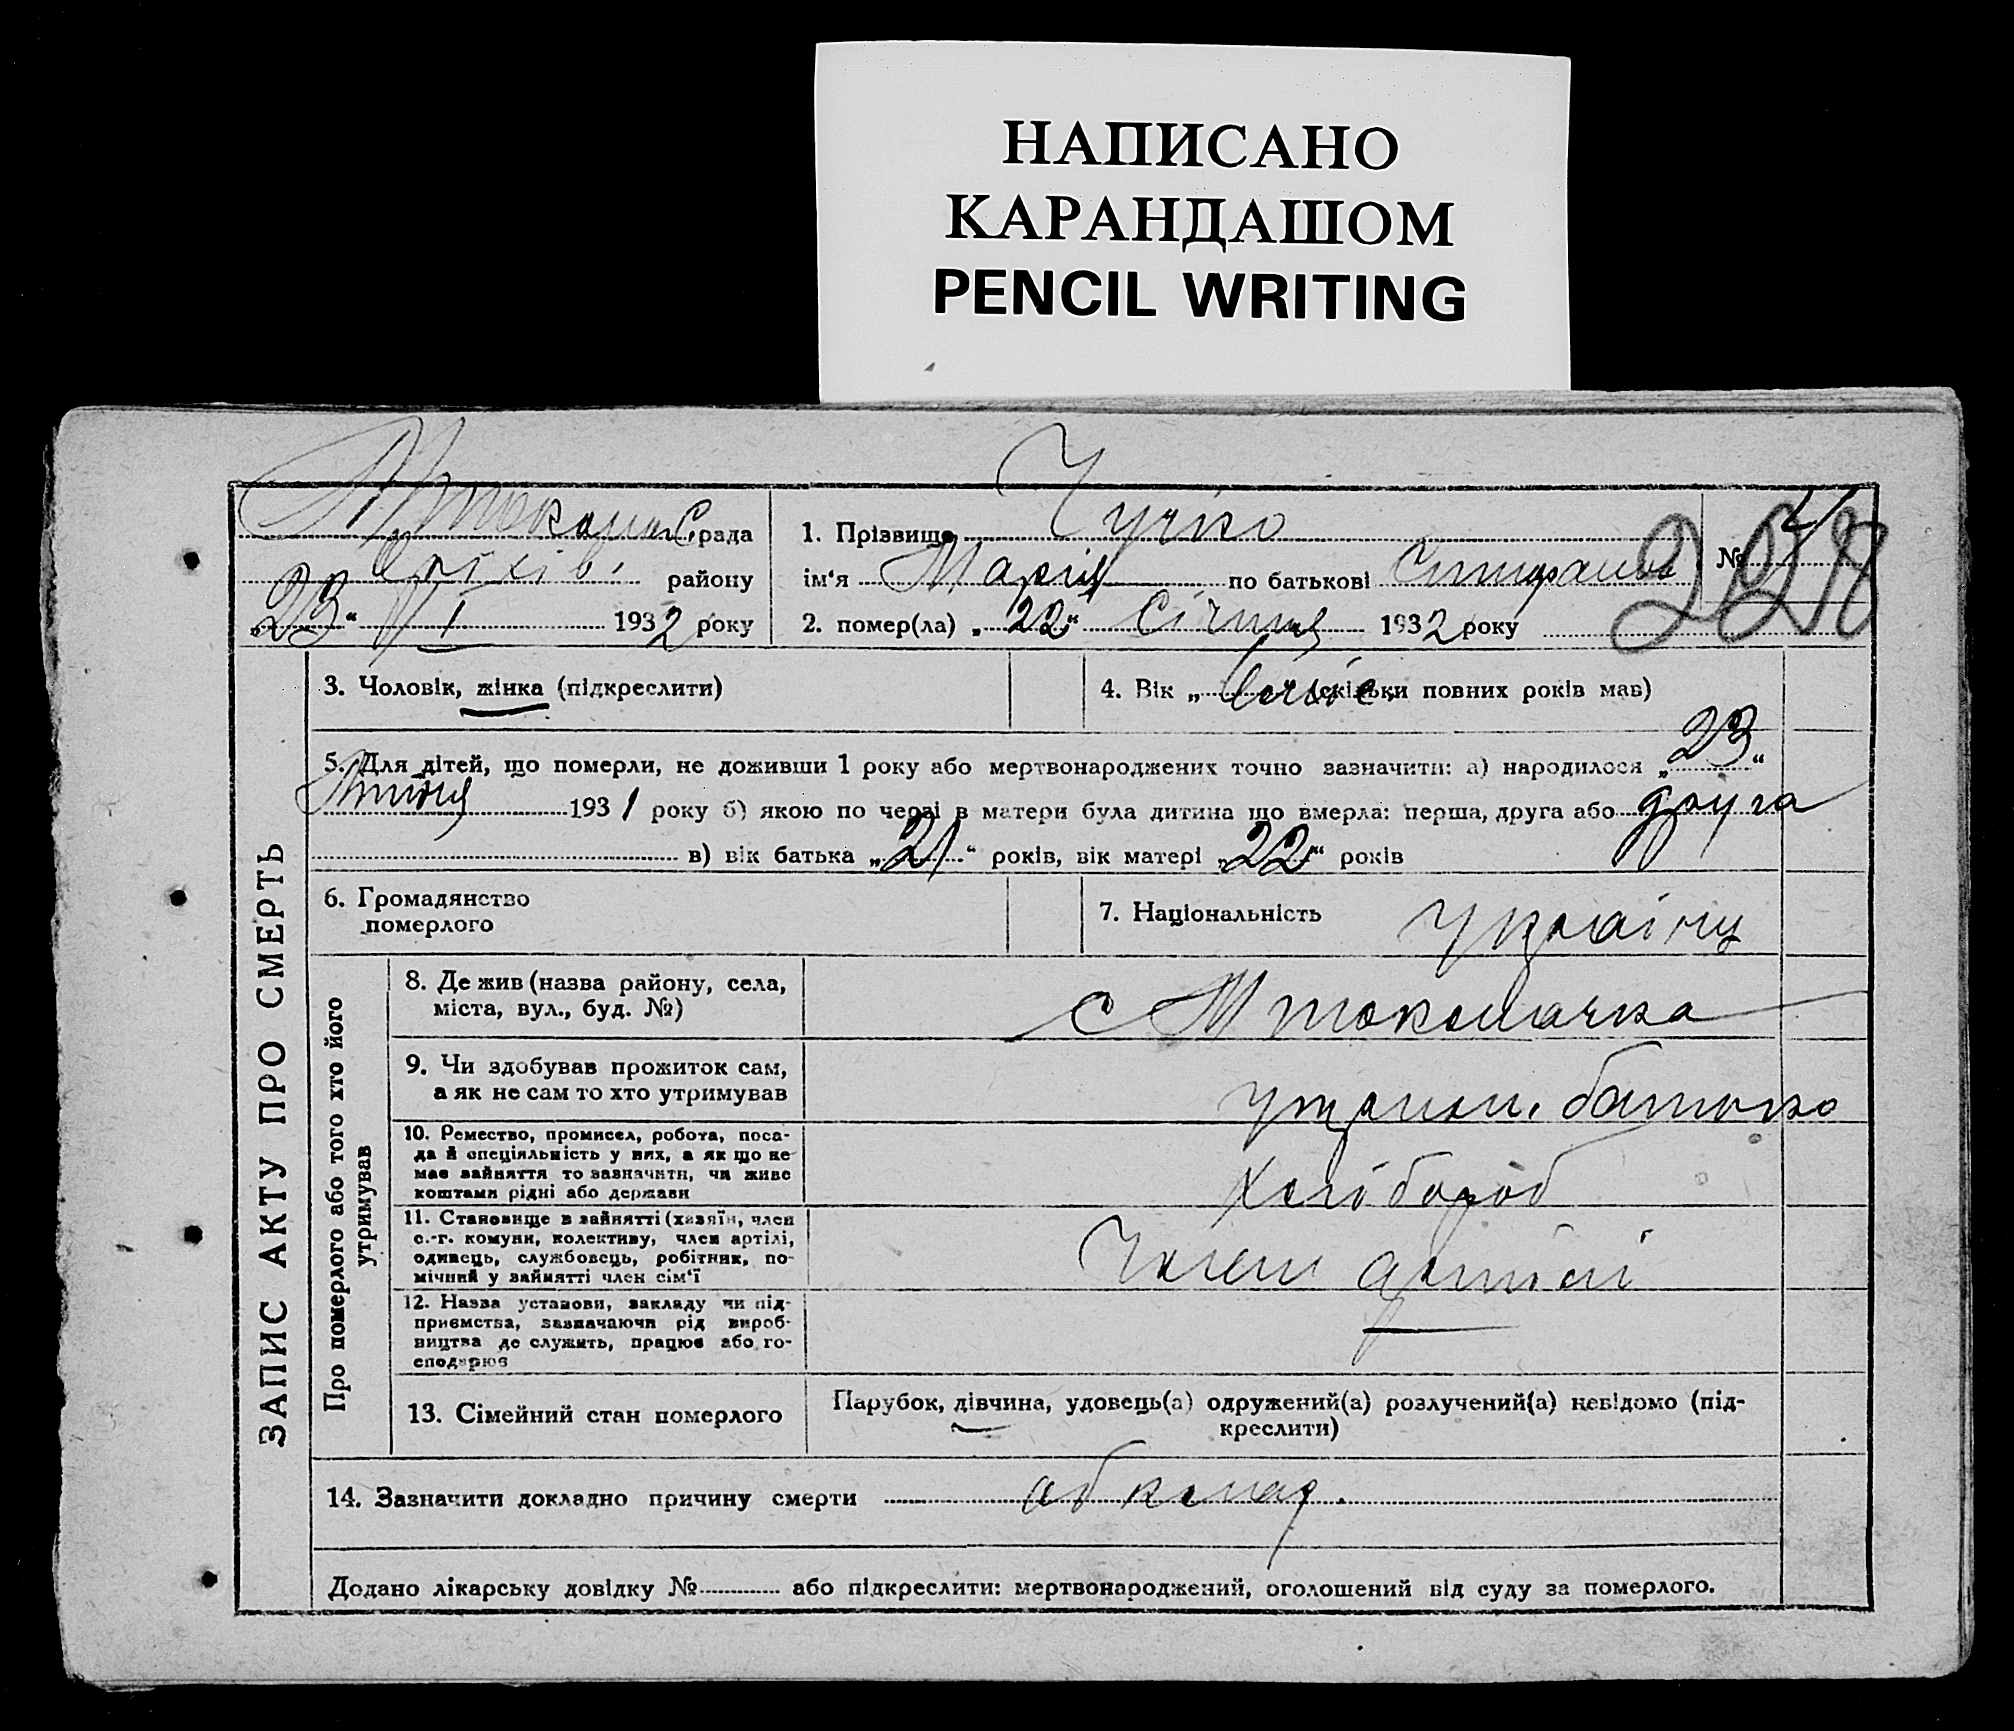 НАПИСАНО
КАРАНДАШОМ
PENCIL WRITING
С. рада
Оріхів. району
„23“ І 1932 року
1. Прізвище Гучко
ім‘я Марія по батькові Стифанов
№
2. помер(ла) „22“ Січня 1932 року
ЗАПИС АКТУ ПРО СМЕРТЬ
3. Чоловік, жінка (підкреслити)
4. Вік „ (скільки повних років мав)
5. Для дітей, що померли, не доживши 1 року або мертвонароджених точно зазначити: а) народилося „23“
1931 року б) якою по черзі в матери була дитина що вмерла: перша, друга або друга
в) вік батька „21“ років, вік матері „22“ років
6. Громадянство
померлого
7. Національність Українц
Про померлого або того хто його
утримував
8. Де жив (назва району, села,
міста, вул., буд. №)
с М токмачка
9. Чи здобував прожиток сам,
а як не сам то хто утримував
утриман. батько
10. Ремество, промисел, робота, поса-
да й спеціяльність у них, а як що не
має зайняття то зазначити, чи живе
коштами рідні або держави
Хлібороб
11. Становище в зайнятті (хазяїн, член
с.-г. комуни, колективу, член артілі,
одинець, службовець, робітник, по-
мічний у зайнятті член сім‘ї
Член артілі
12. Назва установи, закладу чи під-
приємства, зазначаючи рід вироб-
ництва де служить, працює або го-
сподарює
13. Сімейний стан померлого
Парубок, дівчина, удовець(а) одружений(а) розлучений(а) невідомо (під-
креслити)
14. Зазначити докладно причину смерти
Додано лікарську довідку № або підкреслити: мертвонароджений, оголошений від суду за померлого.